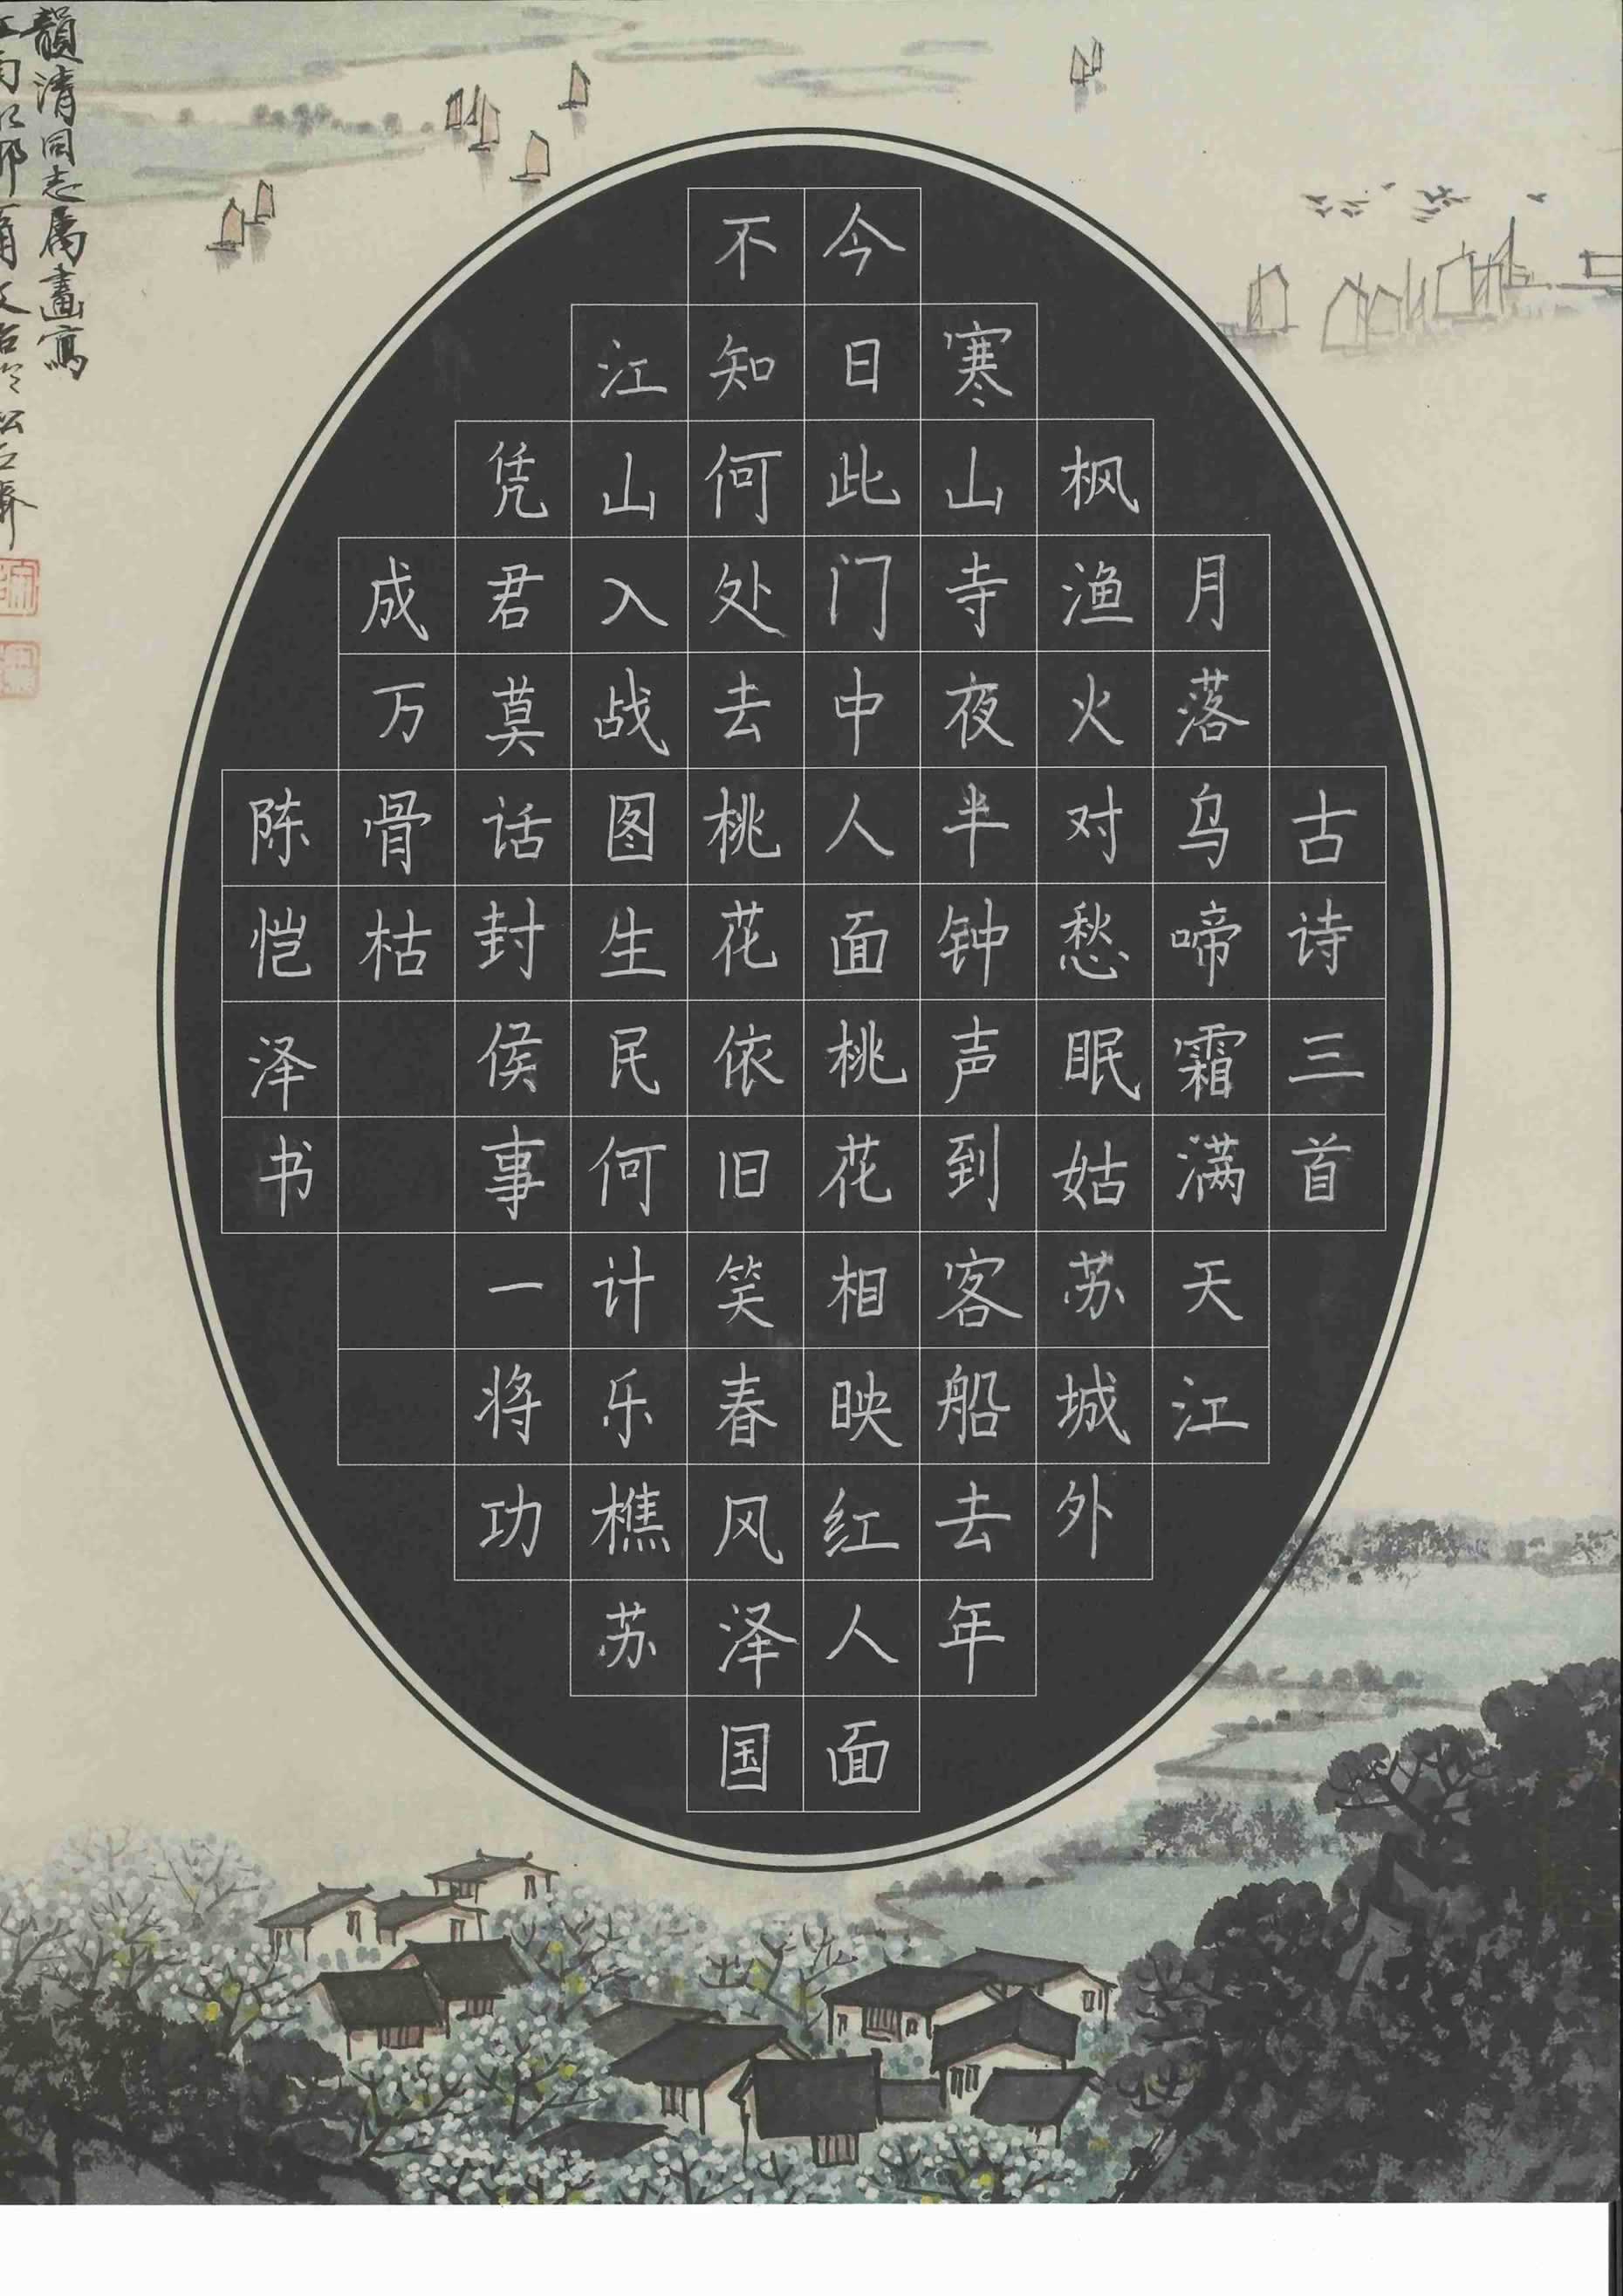 古诗三首
月落乌啼霜满天江
枫渔火对愁眠姑苏城外
寒山寺夜半钟声到客船去年
今日此门中人面桃花相映红人面
不知何处去桃花依旧笑春风泽国
江山入战图生民何计乐樵苏
凭君莫话封侯事一将功
成万骨枯
陈恺泽书
韻清同志属畫寫